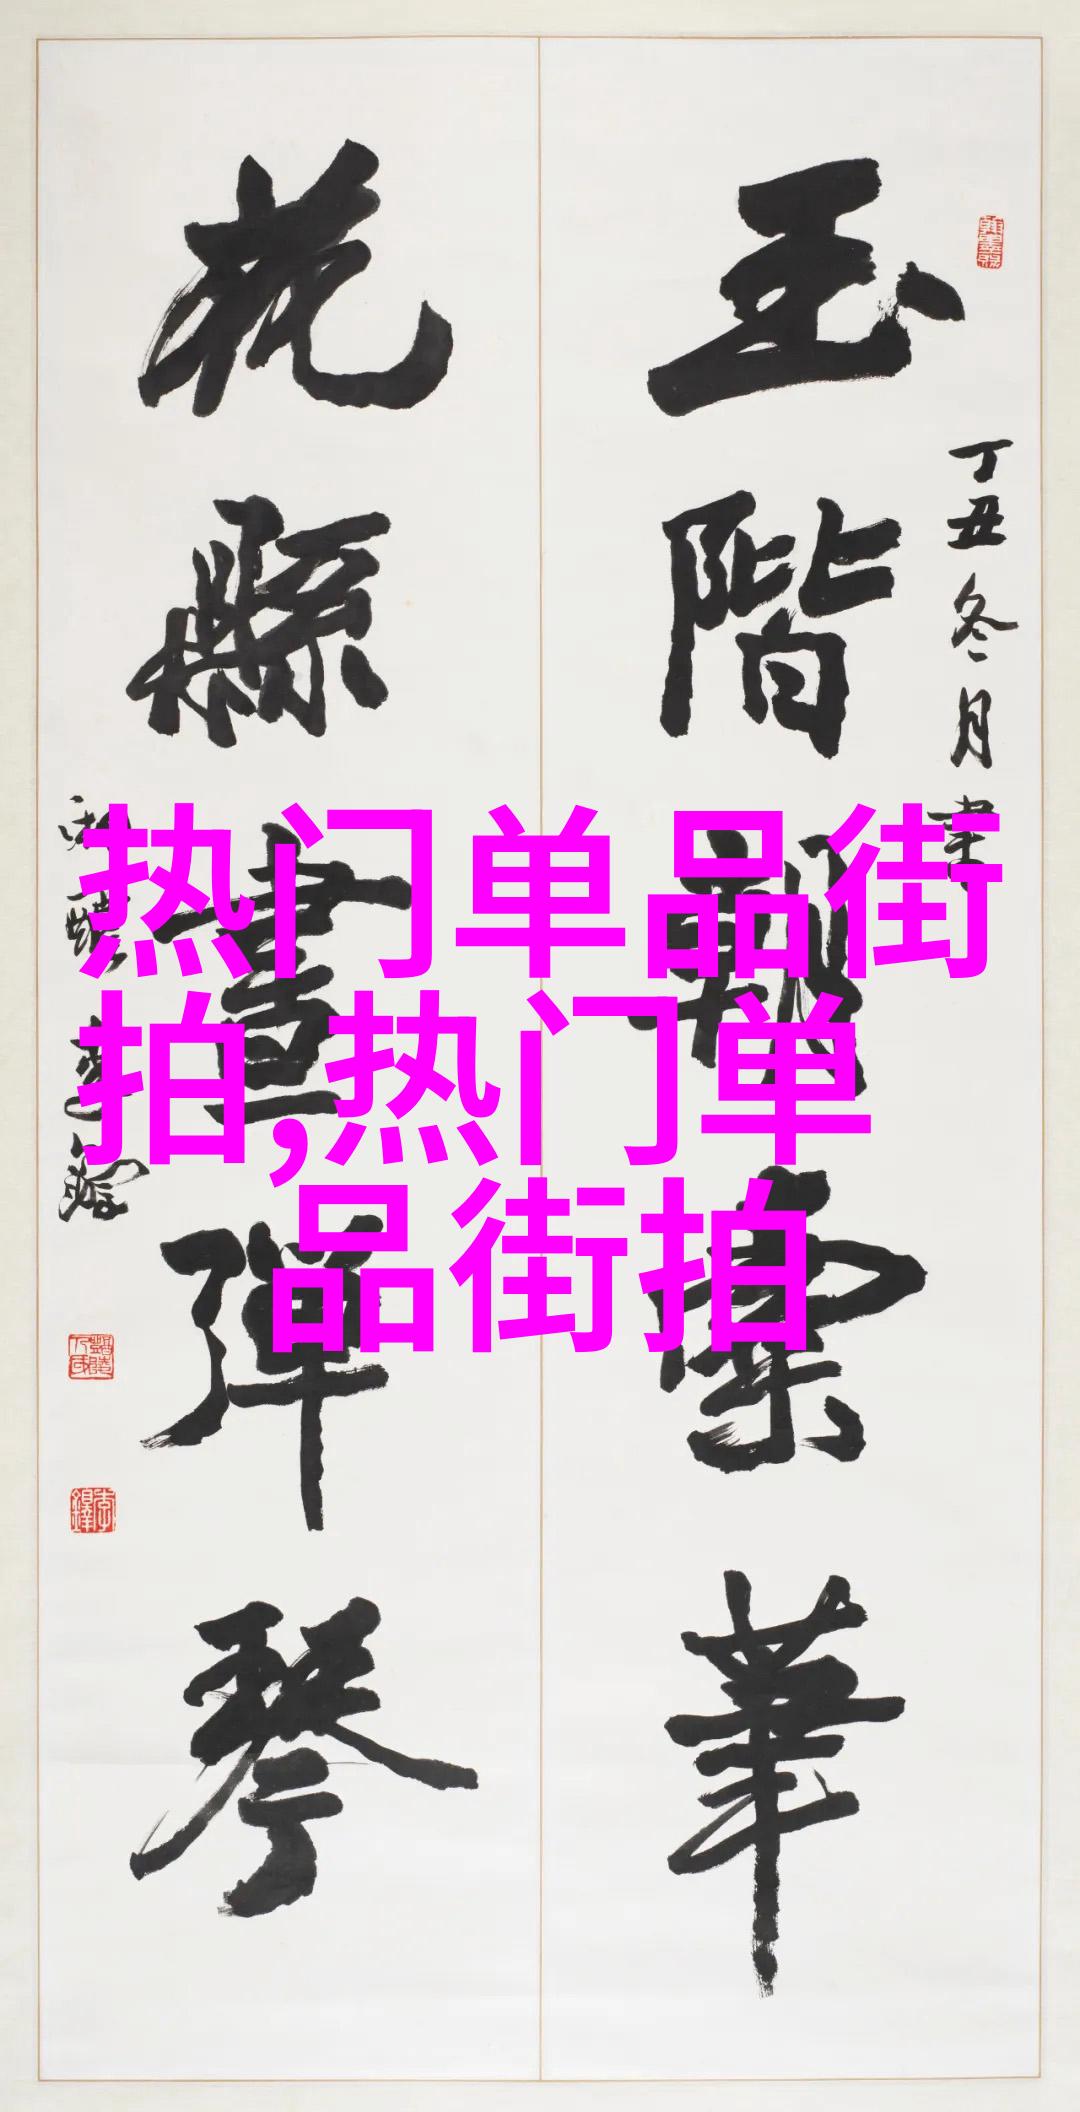 丁丑冬月書
玉階朝
花縣晝彈琴
热门单品街
拍,热门单
品街拍